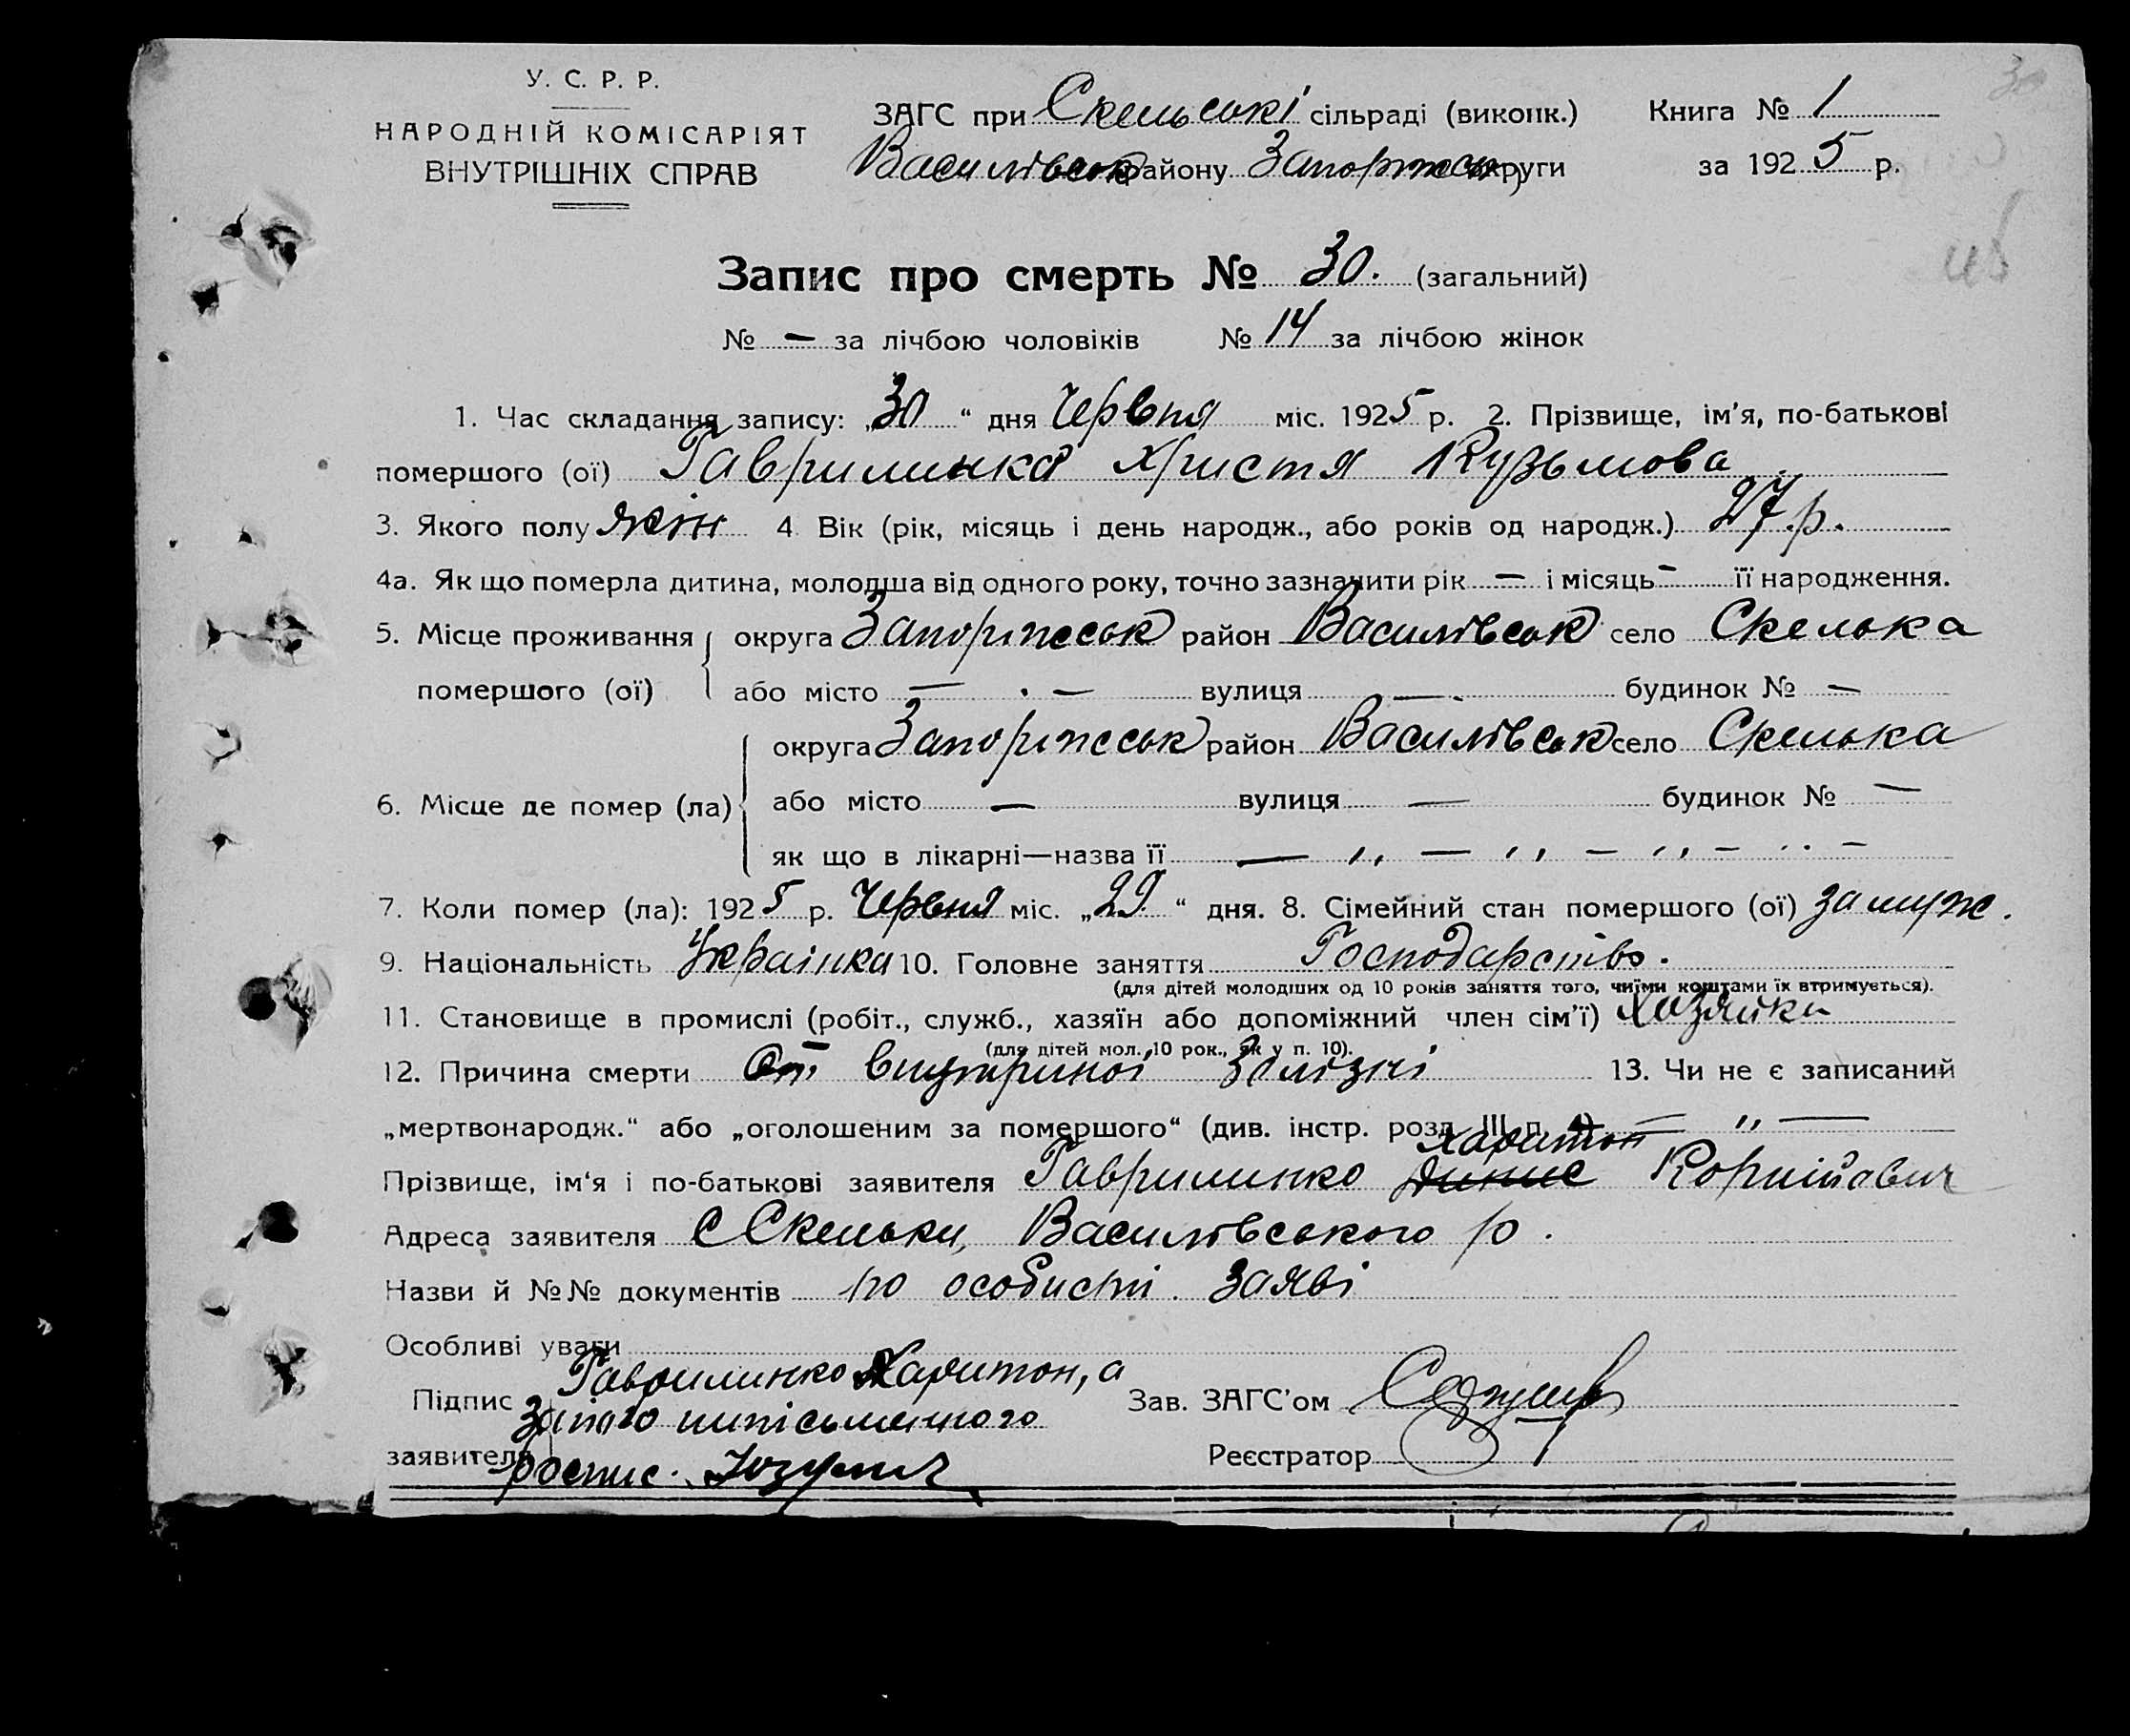 У. С. Р. Р.
НАРОДНІЙ КОМІСАРІЯТ
ВНУТРІШНІХ СПРАВ
ЗАГС при Скельські сільраді (виконк.) Книга № 1
Василівськ району Запоріжськ округи за 1925 р.
Запис про смерть № 30. (загальний)
№ — за лічбою чоловіків № 14 за лічбою жінок
1. Час складання запису: „30“ дня Червня міс. 1925 р. 2. Прізвище, ім’я, по-батькові
помершого (ої) Гаврилинко Христя Кузьмова
3. Якого полу жін 4 Вік (рік, місяць і день народж., або років од народж.) 27 р.
4а. Як що померла дитина, молодша від одного року, точно зазначити рік — і місяць — її народження.
5. Місце проживання округа Запоріжськ район Василівськ село Скелька
помершого (ої) або місто — . — вулиця — . будинок № —
округа Запоріжськ район Василівськ село Скелька
6. Місце де помер (ла) або місто — вулиця — будинок № —
як що в лікарні—назва її — „ — „ — „ — „ —
7. Коли помер (ла): 1925 р. Червня міс. „29“ дня. 8. Сімейний стан помершого (ої) замуж.
9. Національність Українка 10. Головне заняття Господарство.
(для дітей молодших од 10 років заняття того, чиїми коштами їх втримується).
11. Становище в промислі (робіт., служб., хазяїн або допоміжний член сім’ї) Хазяйка
(для дітей мол. 10 рок., як у п. 10).
12. Причина смерти От внутриної 13. Чи не є записаний
„мертвонародж.“ або „оголошеним за помершого“ (див. інстр. розд. III п. 4) — „ —
Харитон
Прізвище, ім‘я і по-батькові заявителя Гаврилинко Корнійович
Адреса заявителя с Скельки, Василівського р.
Назви й №№ документів по особисті заяві
Особливі уваги
Підпис Гаврилинко Харитон, а
за його нипісьменного Зав. ЗАГС’ом
заявителя роспис. Реєстратор